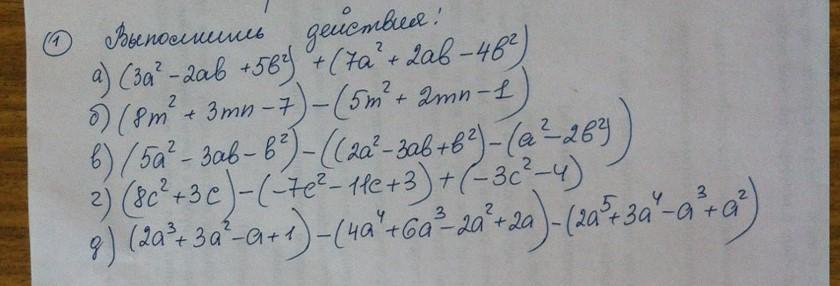 ① Выполнить действия!
а) (3a² - 2ab + 5b²) + (7a² + 2ab - 4b²)
б) (8m² + 3mn - 7) - (5m² + 2mn - 1)
в) (5a² - 3ab - b²) - ((2a² - 3ab + b²) - (a² - 2b²))
г) (8c² + 3c) - (-7c² - 11c + 3) + (-3c² - 4)
д) (2a³ + 3a² - a + 1) - (4a⁴ + 6a³ - 2a² + 2a) - (2a⁵ + 3a⁴ - a³ + a²)